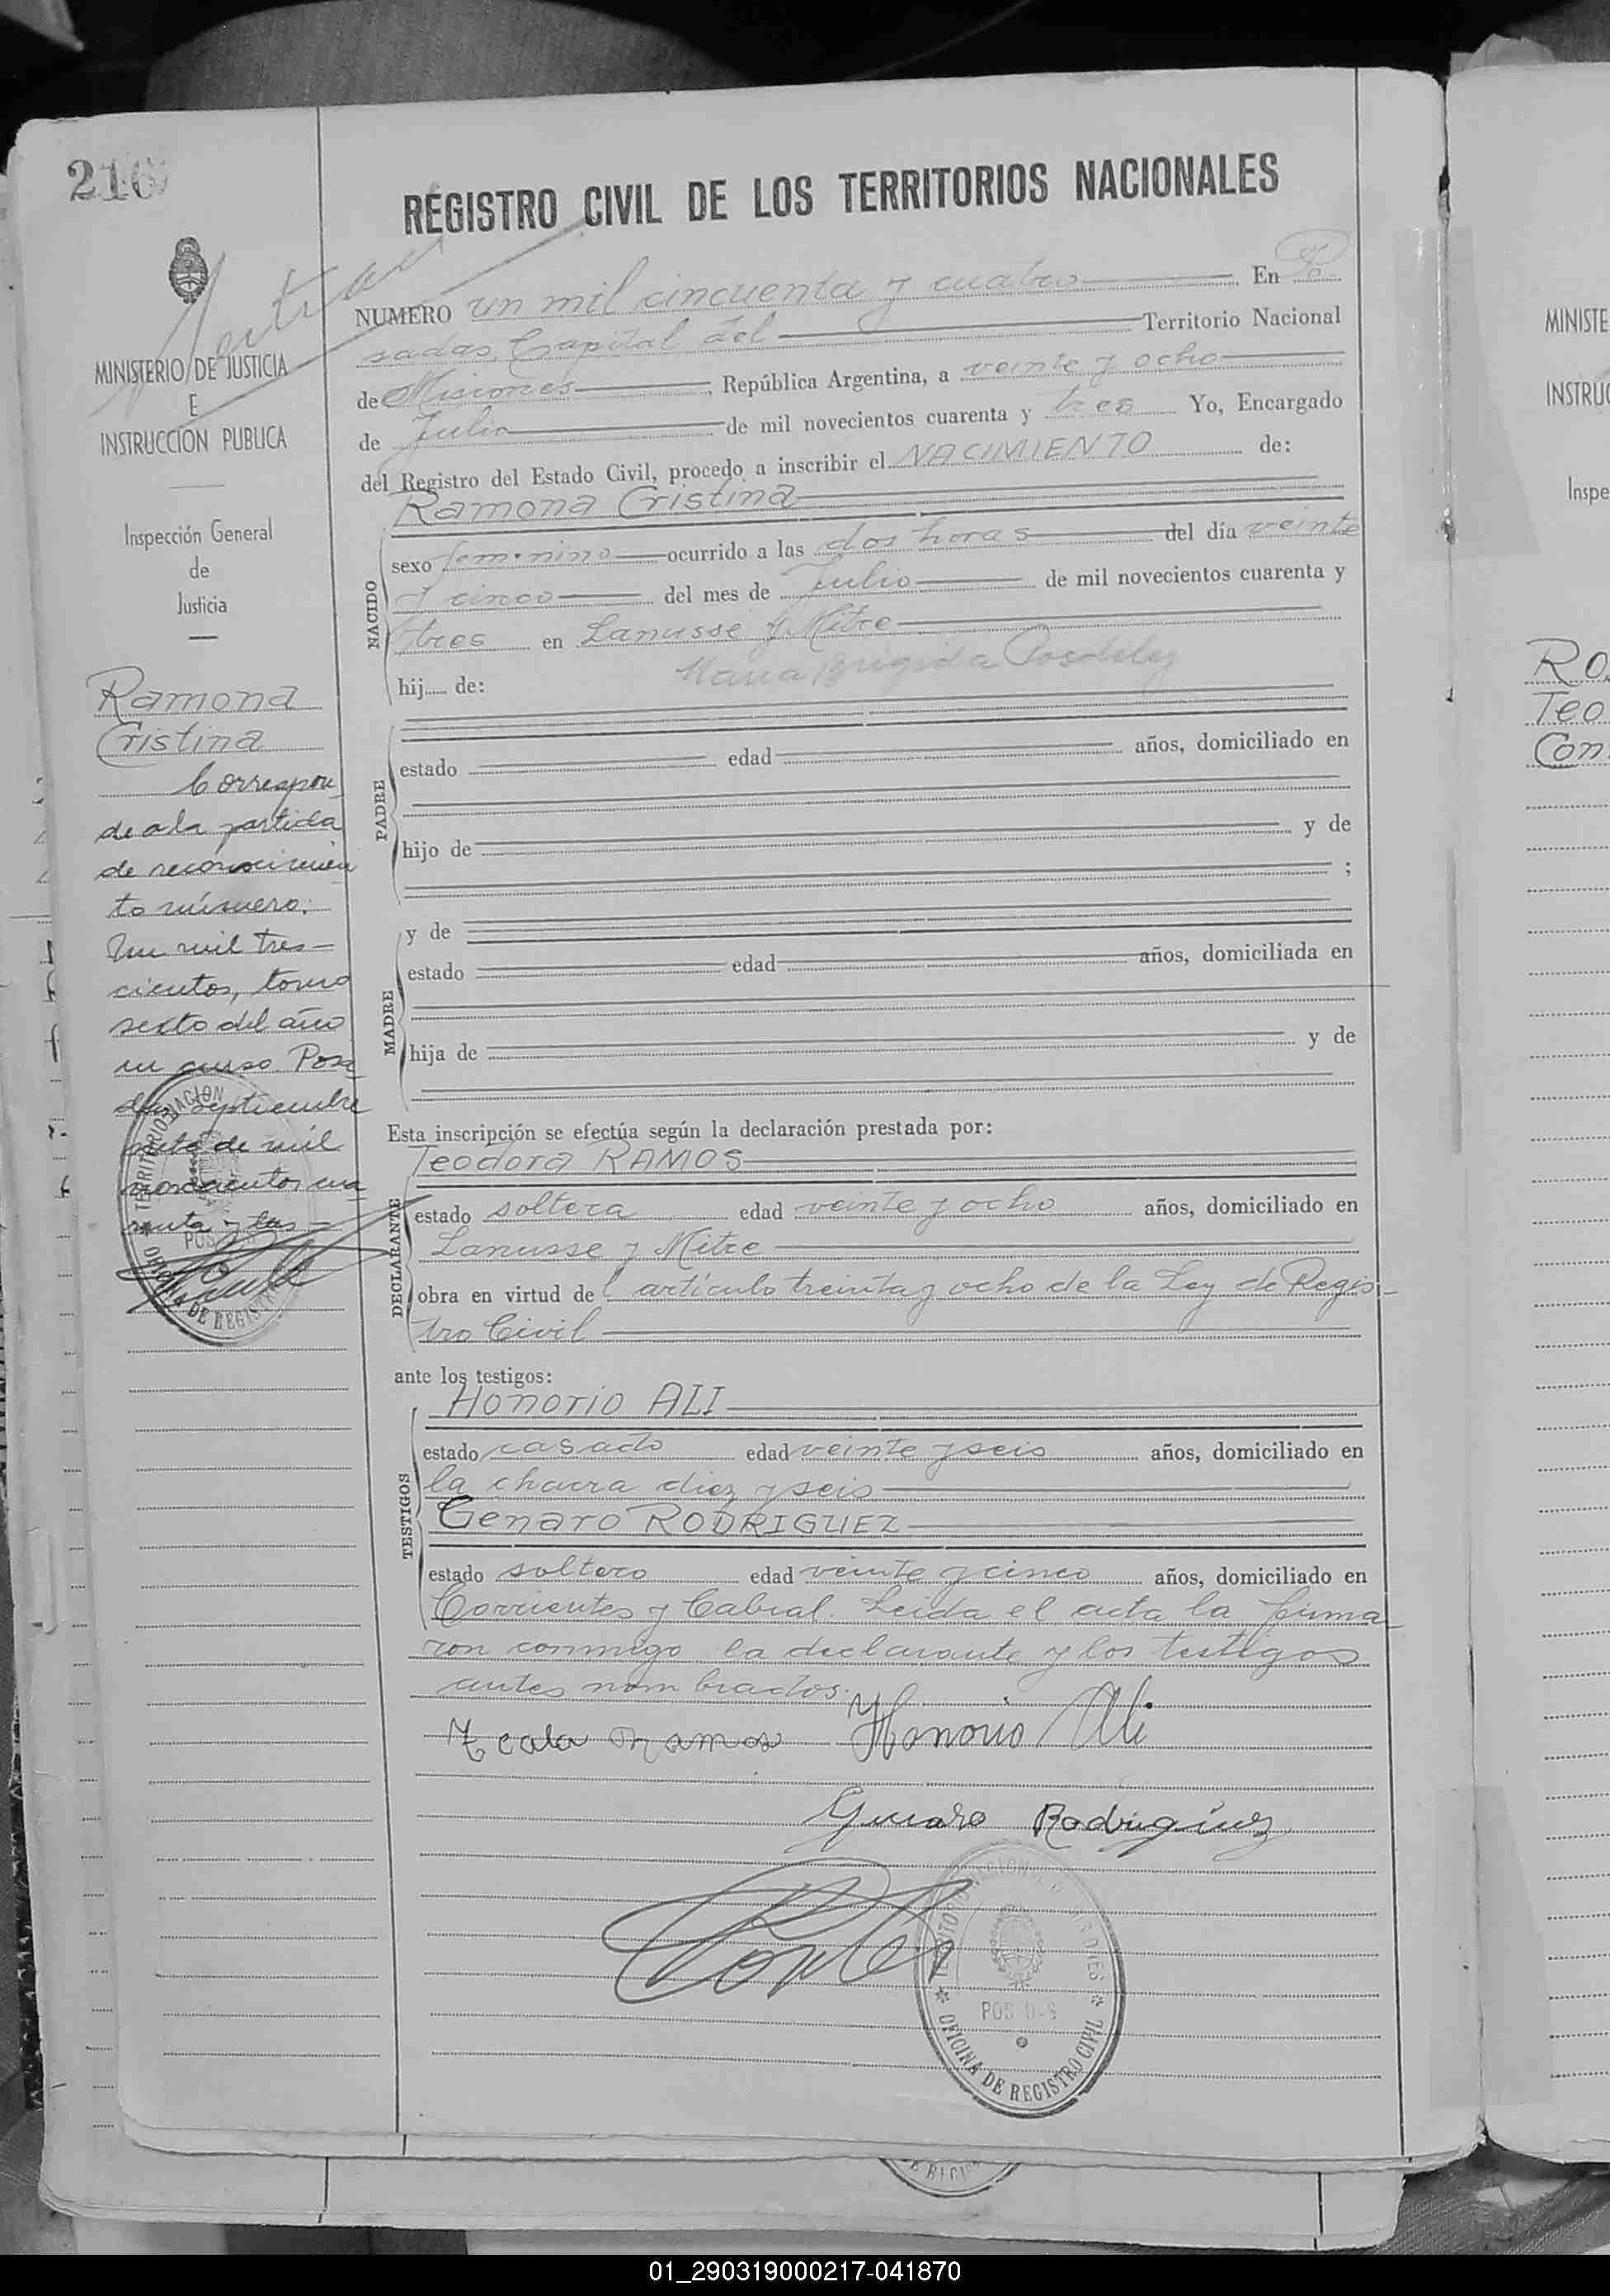 REGISTRO CIVIL DE LOS TERRITORIOS NACIONALES
NUMERO un mil cincuenta y cuatro En Po
sadas Capital del Territorio Nacional
de Misiones, República Argentina, a veinte y ocho
de Julio de mil novecientos cuarenta y tres Yo, Encargado
del Registro del Estado Civil, procedo a inscribir el NACIMIENTO de:
Ramona Cristina
NACIDO
sexo femenino ocurrido a las dos horas del día veinte
y cinco del mes de Julio de mil novecientos cuarenta y
tres en Lanusse y Mitre
hij de: Maria Brigida
PADRE
estado edad años, domiciliado en
hijo de y de
;
MADRE
y de
estado edad años, domiciliada en
hija de y de
Esta inscripción se efectúa según la declaración prestada por:
Teodora RAMOS
DECLARANTE
estado soltera edad veinte y ocho años, domiciliado en
Lanusse y Mitre
obra en virtud del artículo treinta y ocho de la Ley de Regis-
tro Civil
ante los testigos:
Honorio ALI
TESTIGOS
estado casado edad veinte y seis años, domiciliado en
la chacra diez y seis
Genaro RODRIGUEZ
estado soltero edad veinte y cinco años, domiciliado en
Corrientes y Cabral. Leida el acta la firma
ron conmigo la declarante y los testigos
antes nombrados.
Ramos Honorio Ali
Genaro Rodriguez
OFICINA DE REGISTRO CIVIL
MINISTERIO DE JUSTICIA
E
INSTRUCCION PUBLICA
Inspección General
de
Justicia
Ramona
Cristina
Correspon
de a la partida
de reconocimien
to número:
Un mil tres-
cientos, tomo
sexto del año
en curso. Posa
das, Septiembre
siete de mil
novecientos cua
renta y tres
MINISTE
INSTRUC
Inspe
Ro
Teo
Con
01_290319000217-041870